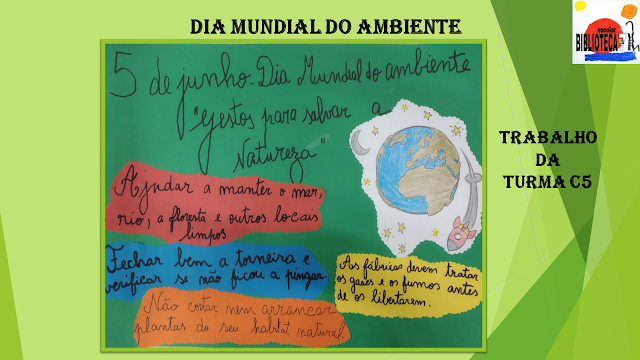 DIA MUNDIAL DO AMBIENTE
escolar
BIBLIOTECA
5 de junho - Dia Mundial do ambiente
"gestos para salvar a
Natureza"
Ajudar a manter o mar,
rio, a floresta e outros locais
limpos
Fechar bem a torneira e
verificar se não ficou a pingar.
Não cortar nem arrancar
plantas do seu habitat natural.
As fábricas devem tratar
os gases e os fumos antes
de os libertarem.
TRABALHO
DA
TURMA C5